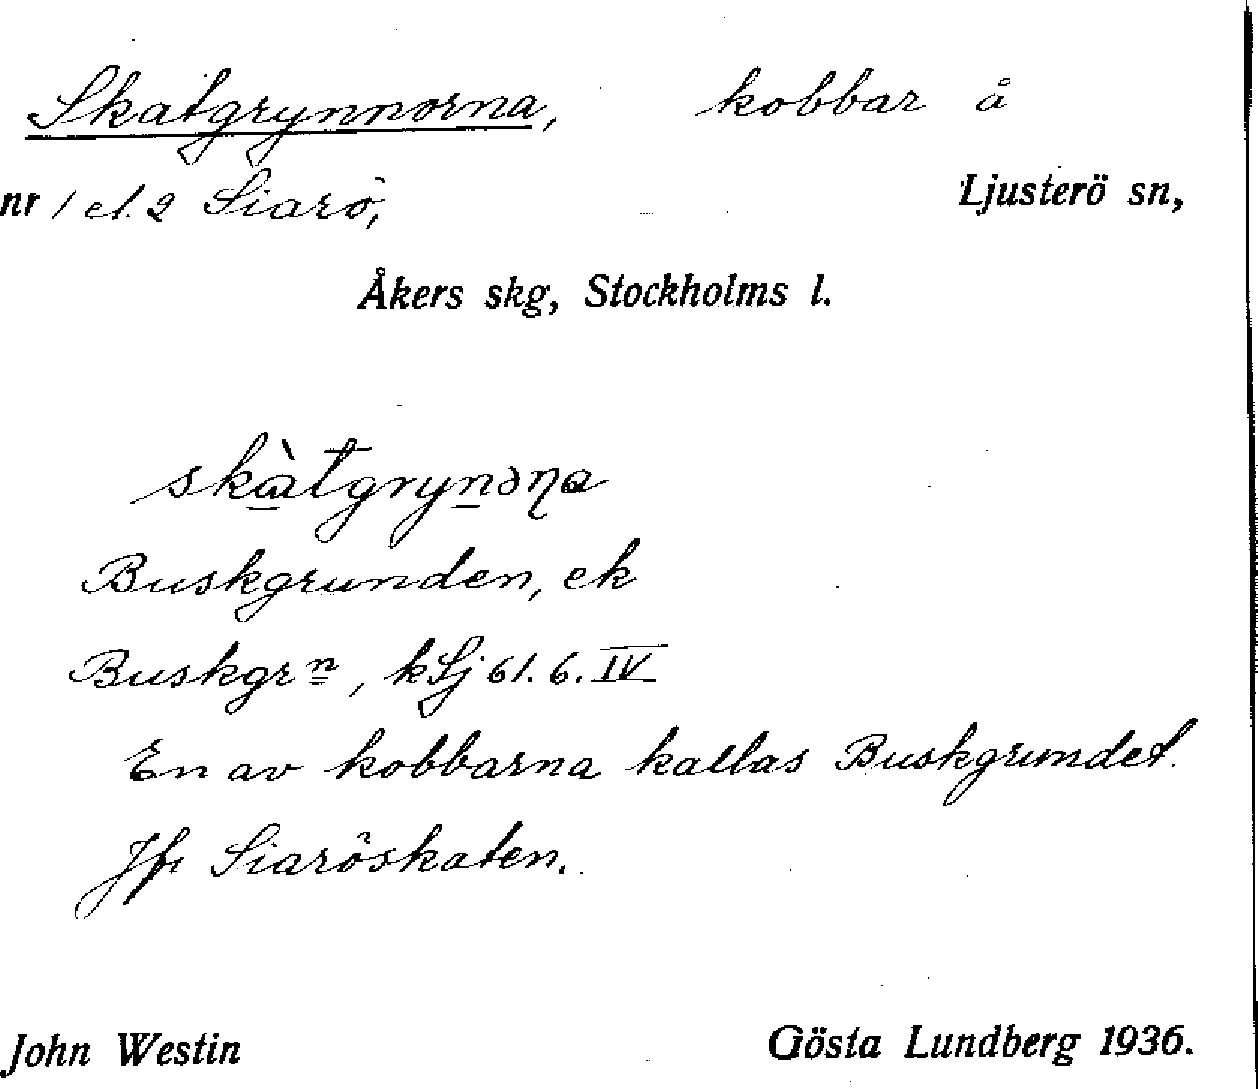 Skatgrynnorna, kobbar å
nr 1 el. 2 Siarö, Ljusterö sn,
Åkers skg, Stockholms l.
skàtgrynəɳa
Buskgrunden, ek
Buskgrn, kSj 61. 6. IV
En av kobbarna kallas Buskgrundet.
Jfr Siaröskaten.
John Westin Gösta Lundberg 1936.